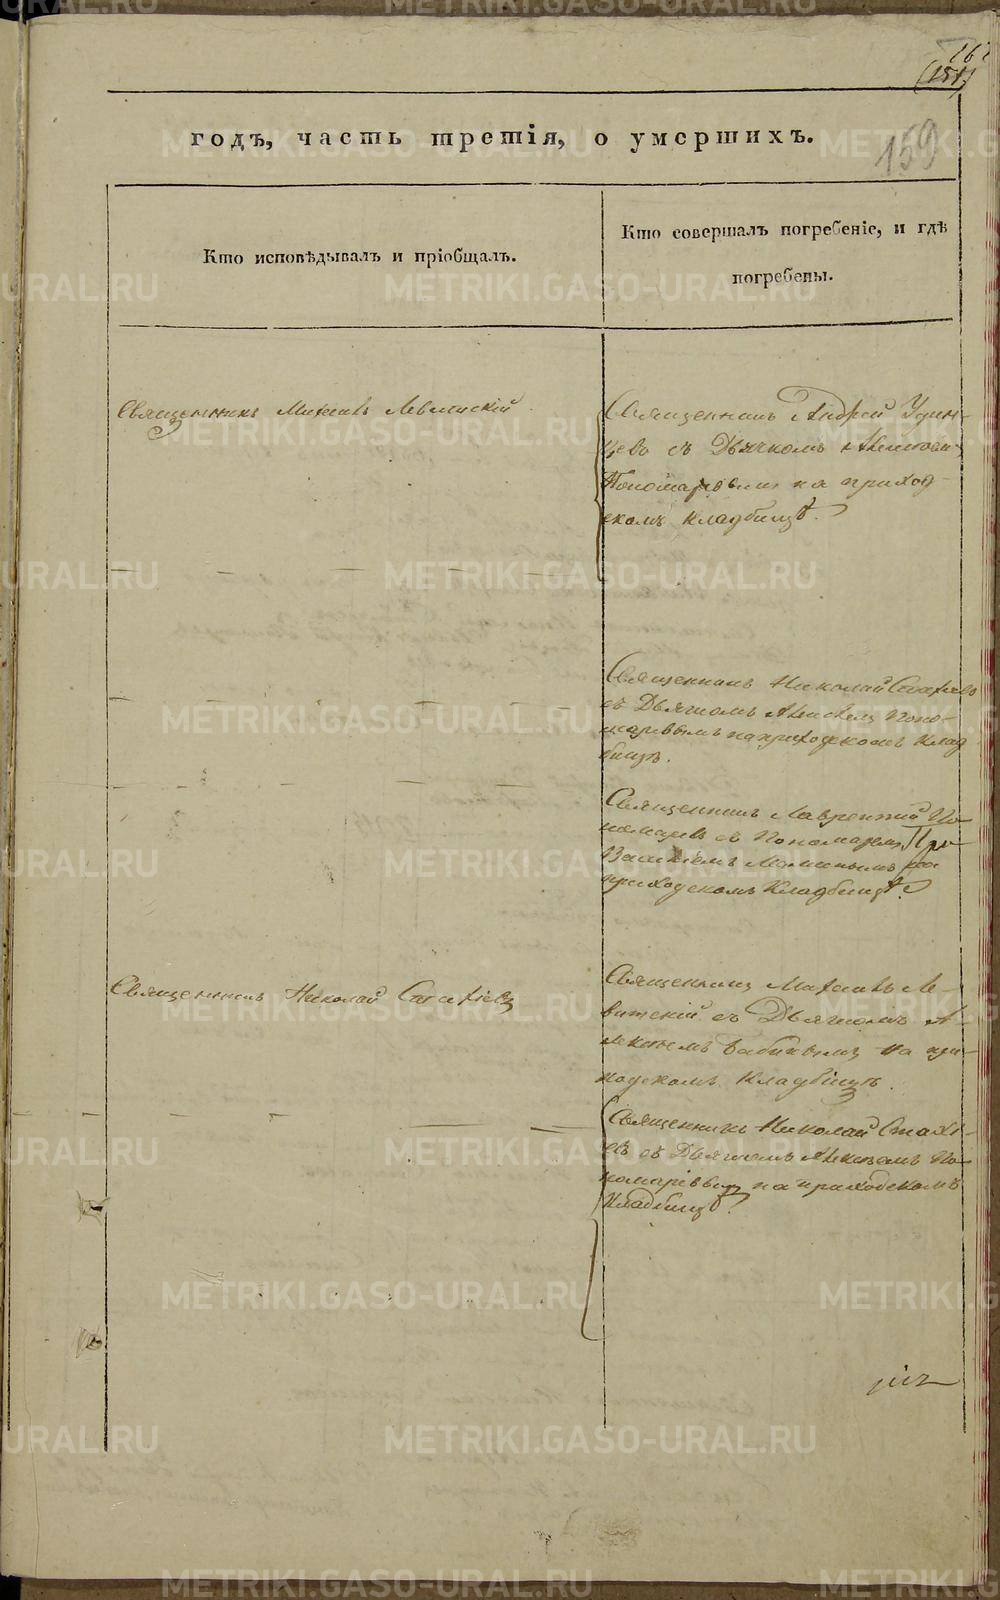 (151)
159
годъ, часть третія, о умершихъ.
Кто исповѣдывалъ и пріобщалъ.
Кто совершалъ погребеніе, и гдѣ
погребены.
Священникъ Михаилъ Левитскій
Священникъ Андрей Удин-
цевъ съ Дьячкомъ Алексѣемъ
Пономаревымъ на приход-
скомъ кладбищѣ.
Священникъ Николай Стахіевъ
съ Дьячкомъ Алексѣемъ Поно-
маревымъ на приходскомъ клад
бищѣ.
Священникъ Лаврентій По-
номаревъ съ Пономаремъ
на
приходскомъ кладбищѣ.
Священникъ Николай Стахіевъ
Священникъ Михаилъ Ле-
витскій съ Дьячкомъ А-
лексѣемъ Бабинымъ на при-
ходскомъ кладбищѣ.
Священникъ Николай Стахі-
евъ съ Дьячкомъ Алексѣемъ По-
номаревымъ на приходскомъ
кладбищѣ.
METRIKI.GASO-URAL.RU